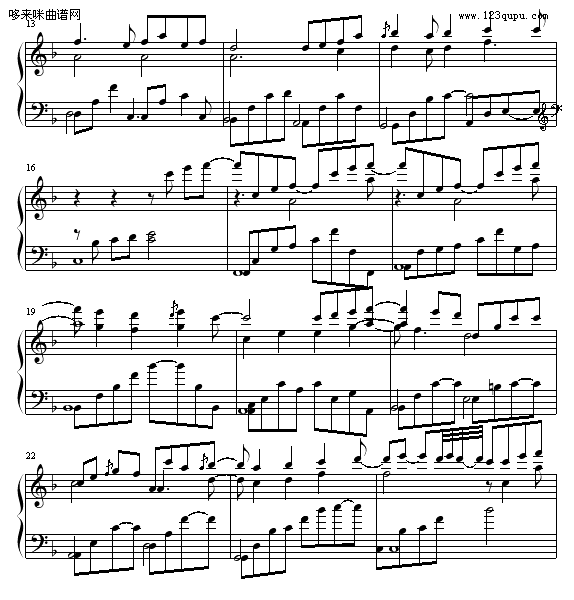 哆来咪曲谱网
www.123qupu.com
13
16
19
22